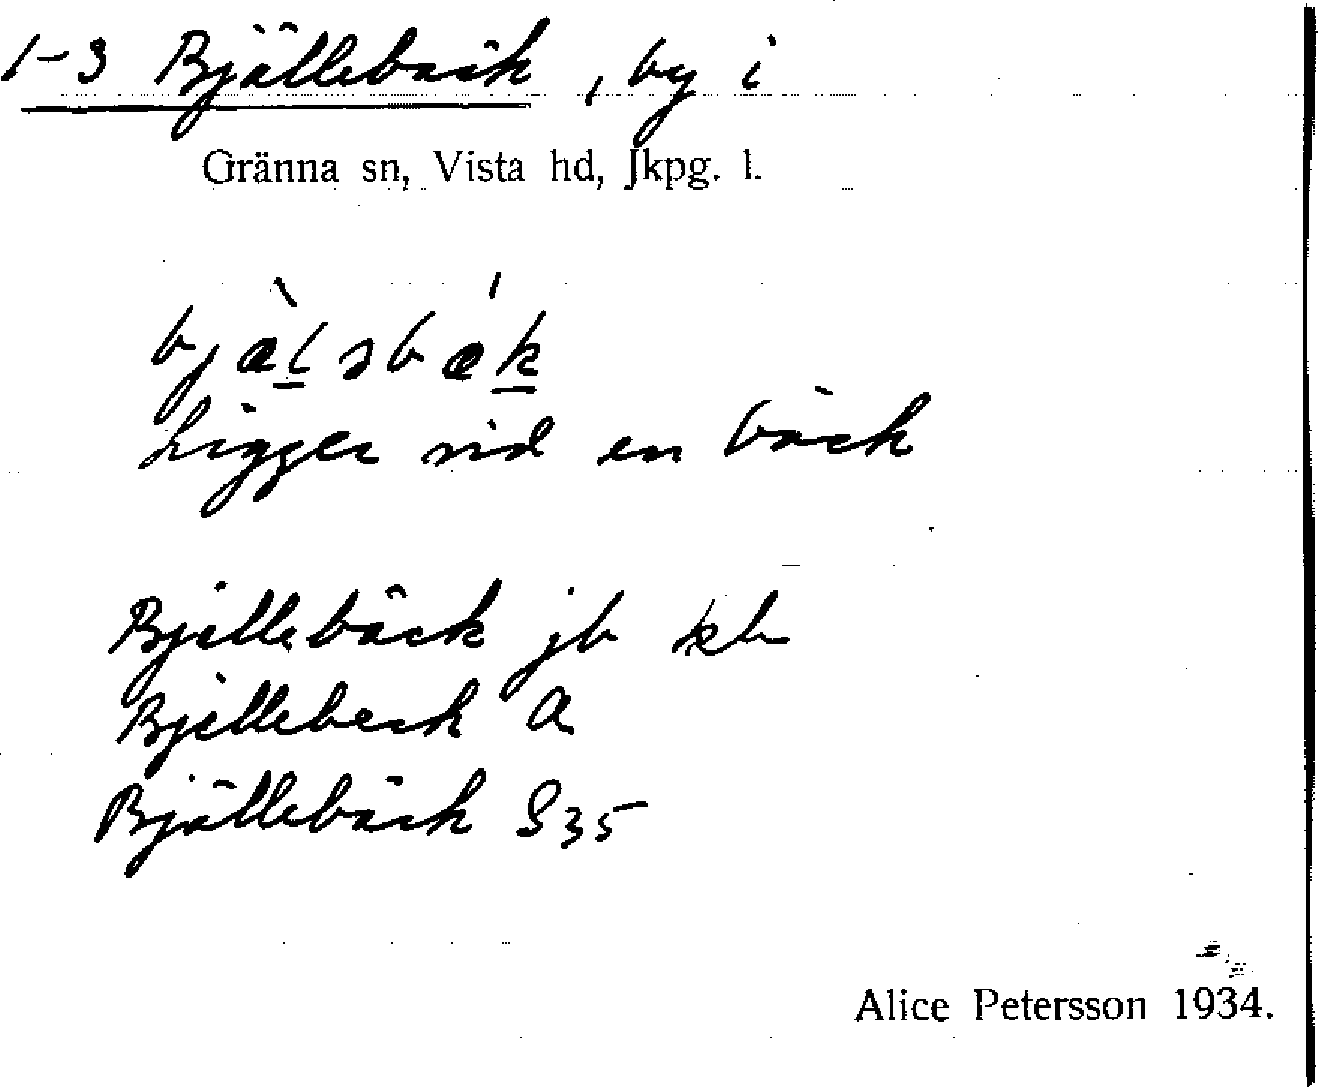 1-3 Bjällebäck, by i
Gränna sn, Vista hd, Jkpg. l.
bjæ̀l̲əbǽk̲
Ligger vid en bäck
Bjellebäck jb kb
Bjellebeck a
Bjällebäck S35
Alice Petersson 1934.